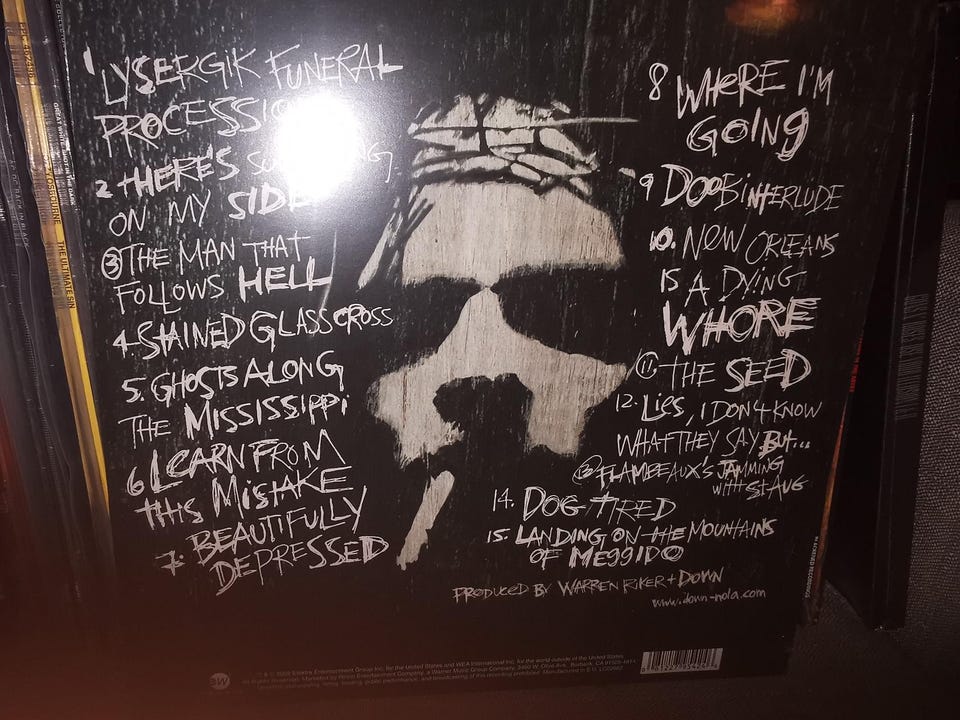 1 LYSERGIK FUNERAL
PROCESSION
2 THERE'S SOMETHING
ON MY SIDE
3 THE MAN THAT
FOLLOWS HELL
4 STAINED GLASS CROSS
5. GHOSTS ALONG
THE MISSISSIPPI
6 LEARN FROM
THIS MISTAKE
7. BEAUTIFULLY
DEPRESSED
8 WHERE I'M
GOING
9 DOOBINTERLUDE
10. NEW ORLEANS
IS A DYING
WHORE
11. THE SEED
12. LIES, I DON'T KNOW
WHAT THEY SAY BUT...
13 FLAMBEAUX'S JAMMING
WITH ST AUG
14. DOG TIRED
15. LANDING ON THE MOUNTAINS
OF MEGGIDO
PRODUCED BY WARREN RIKER + DOWN
www.down-nola.com
THE ULTIMATE SIN